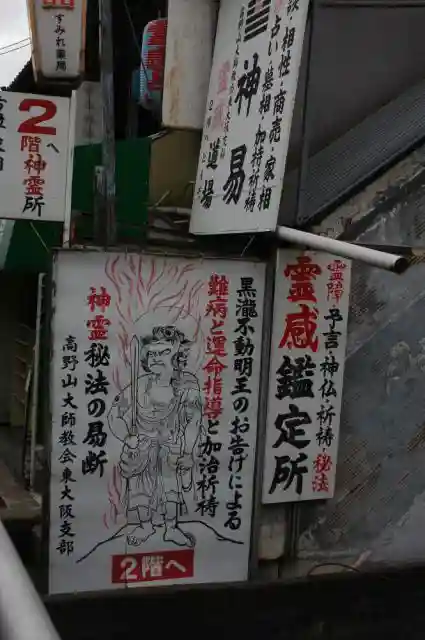 すみれ薬局
2
階
へ
神霊所
占い・墓相・加持祈祷
相性・商売・家相
神易道場
霊感
東大阪大神
黒瀧不動明王のお告げによる
難病と運命指導と加治祈祷
神霊秘法の易断
高野山大師教会東大阪支部
2階へ
霊障・予言・神仏・祈祷・秘法
霊感鑑定所